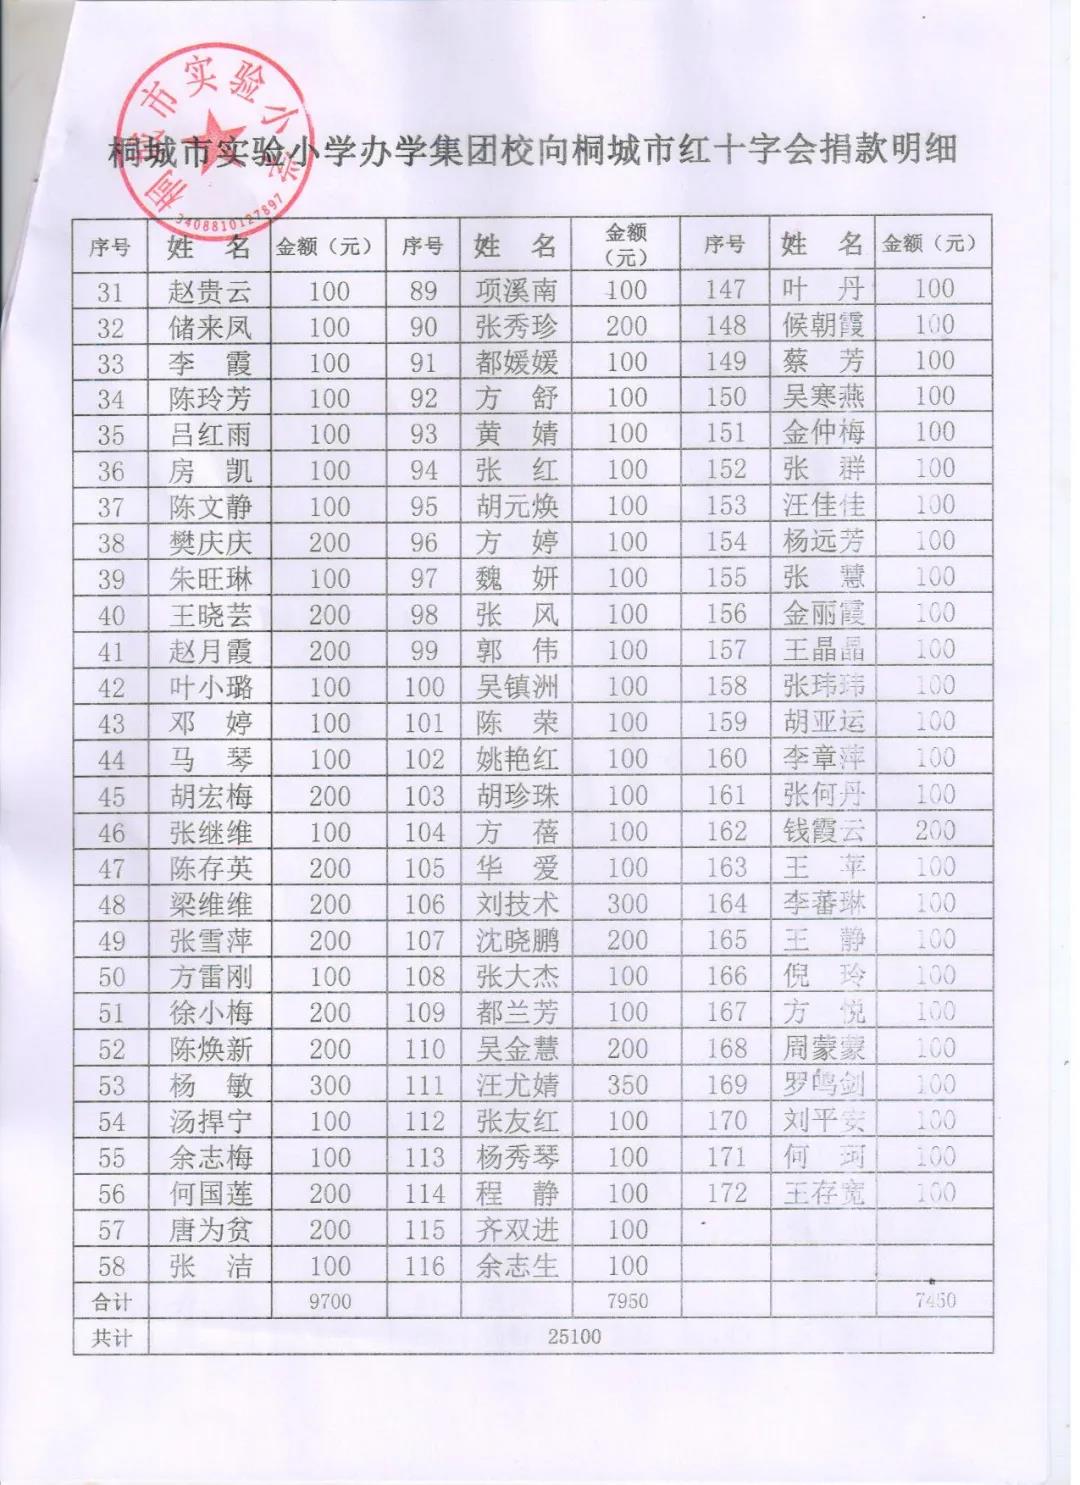 桐城市实验小学
3408810127897
桐城市实验小学办学集团校向桐城市红十字会捐款明细
序号 姓 名 金额（元） 序号 姓 名 金额（元） 序号 姓 名 金额（元）
31 赵贵云 100 89 项溪南 100 147 叶 丹 100
32 储来凤 100 90 张秀珍 200 148 候朝霞 100
33 李 霞 100 91 都媛媛 100 149 蔡 芳 100
34 陈玲芳 100 92 方 舒 100 150 吴寒燕 100
35 吕红雨 100 93 黄 婧 100 151 金仲梅 100
36 房 凯 100 94 张 红 100 152 张 群 100
37 陈文静 100 95 胡元焕 100 153 汪佳佳 100
38 樊庆庆 200 96 方 婷 100 154 杨远芳 100
39 朱旺琳 100 97 魏 妍 100 155 张 慧 100
40 王晓芸 200 98 张 风 100 156 金丽霞 100
41 赵月霞 200 99 郭 伟 100 157 王晶晶 100
42 叶小璐 100 100 吴镇洲 100 158 张玮玮 100
43 邓 婷 100 101 陈 荣 100 159 胡亚运 100
44 马 琴 100 102 姚艳红 100 160 李章萍 100
45 胡宏梅 200 103 胡珍珠 100 161 张何丹 100
46 张继维 100 104 方 蓓 100 162 钱霞云 200
47 陈存英 200 105 华 爱 100 163 王 苹 100
48 梁维维 200 106 刘技术 300 164 李蕃琳 100
49 张雪萍 200 107 沈晓鹏 200 165 王 静 100
50 方雷刚 100 108 张大杰 100 166 倪 玲 100
51 徐小梅 200 109 都兰芳 100 167 方 悦 100
52 陈焕新 200 110 吴金慧 200 168 周蒙蒙 100
53 杨 敏 300 111 汪尤婧 350 169 罗鸣剑 100
54 汤捍宁 100 112 张友红 100 170 刘平安 100
55 余志梅 100 113 杨秀琴 100 171 何 珂 100
56 何国莲 200 114 程 静 100 172 王存宽 100
57 唐为贫 200 115 齐双进 100
58 张 洁 100 116 余志生 100
合计 9700 7950 7450
共计 25100